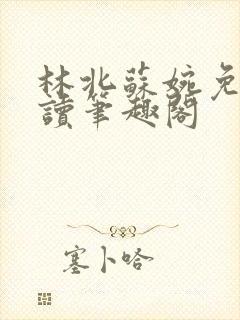 林北蘇婉免
讀筆趣閣
塞卜哈